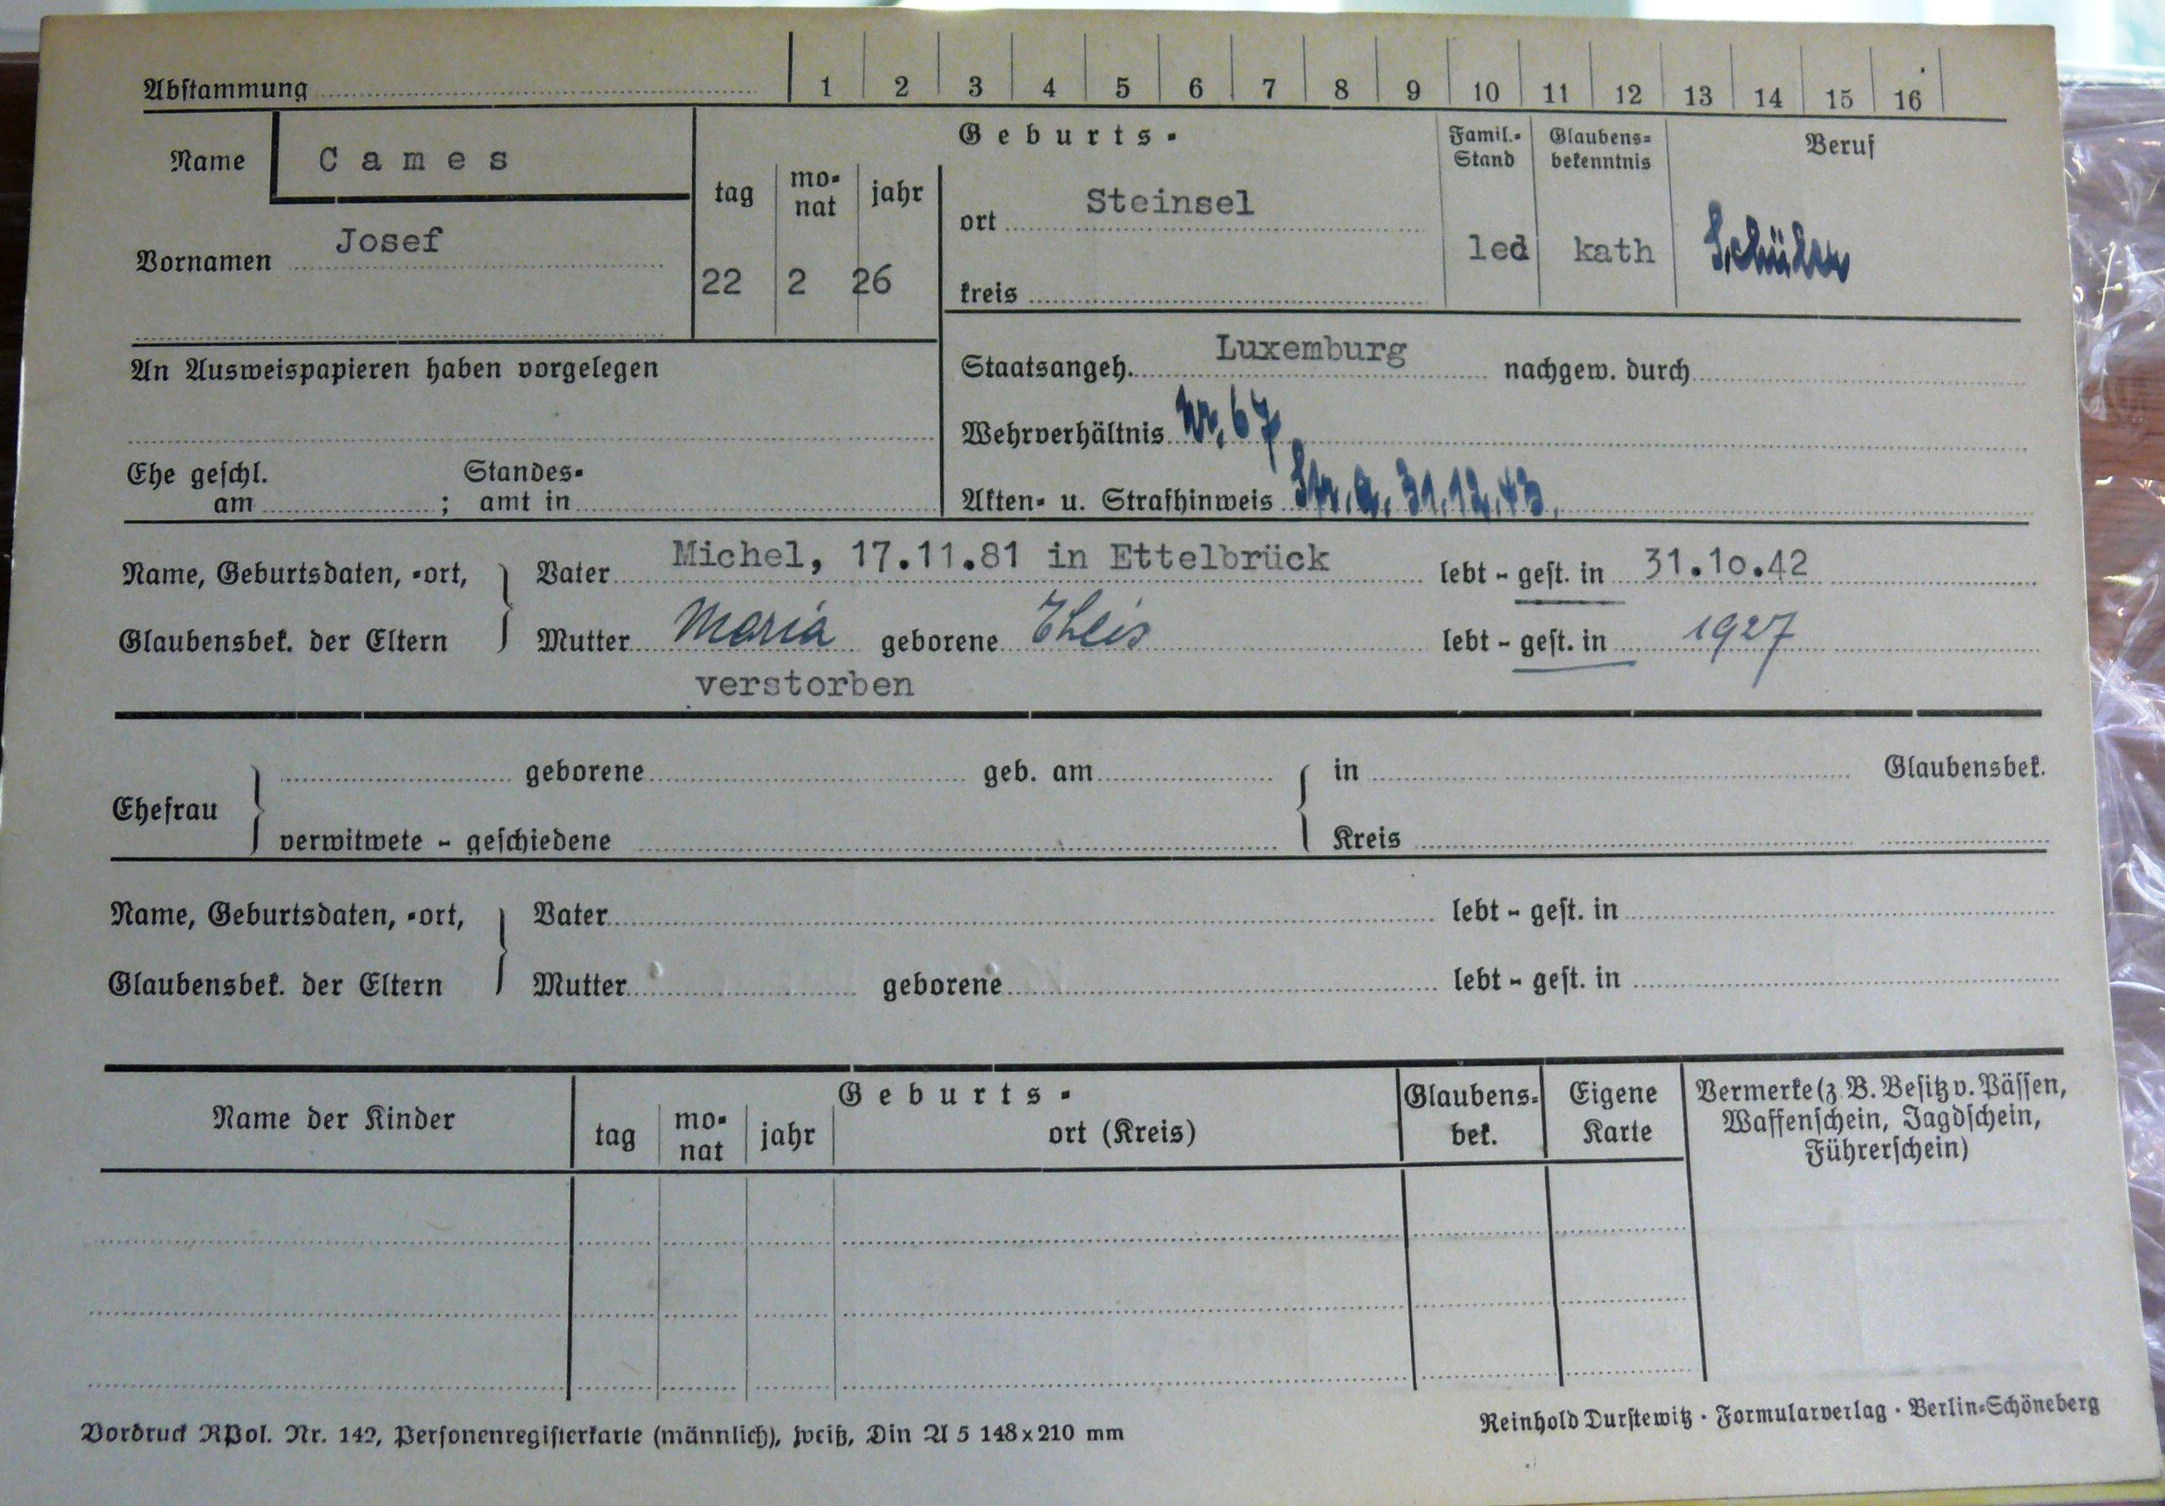 Abstammung 1 2 3 4 5 6 7 8 9 10 11 12 13 14 15 16
Name Cames
Vornamen Josef
Geburts-
tag mo-nat jahr
22 2 26
ort Steinsel
kreis
Famil.-Stand
led
Glaubens-bekenntnis
kath
Beruf
Schüler
An Ausweispapieren haben vorgelegen
Ehe geschl. am ; Standes-amt in
Staatsangeh. Luxemburg nachgew. durch
Wehrverhältnis Nr. 67
Akten- u. Strafhinweis Str. a. 31.12.43.
Name, Geburtsdaten, -ort, Vater Michel, 17.11.81 in Ettelbrück lebt - gest. in 31.10.42
Glaubensbek. der Eltern Mutter Maria geborene Theis lebt - gest. in 1927
verstorben
Ehefrau geborene geb. am in Glaubensbek.
verwitwete - geschiedene Kreis
Name, Geburtsdaten, -ort, Vater lebt - gest. in
Glaubensbek. der Eltern Mutter geborene lebt - gest. in
Name der Kinder
Geburts-
tag mo-nat jahr ort (Kreis)
Glaubens-bek.
Eigene Karte
Vermerke (z. B. Besitz v. Pässen,
Waffenschein, Jagdschein,
Führerschein)
Vordruck RPol. Nr. 142, Personenregisterkarte (männlich), weiß, Din A 5 148x210 mm
Reinhold Durstewitz · Formularverlag · Berlin-Schöneberg